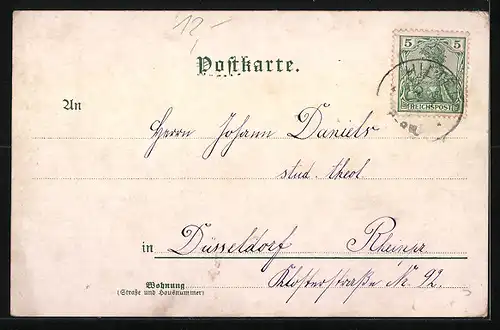 12-
Postkarte.
5 5
REICHSPOST
An
Herrn Johann Daniels
stud. theol
in Düsseldorf Rheinpr.
Wohnung
(Straße und Hausnummer)
Klosterstraße Nr. 92.